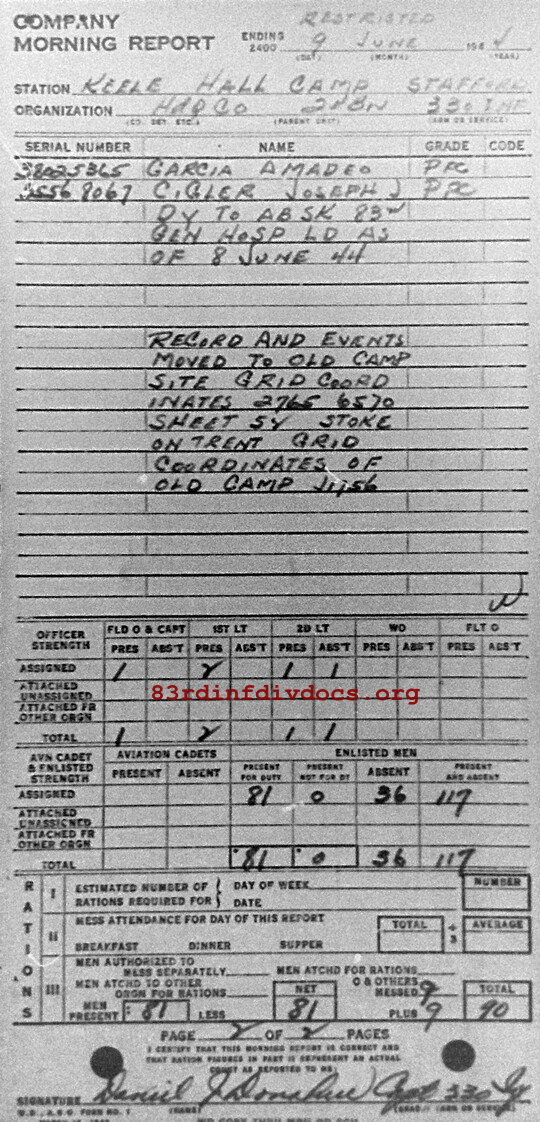 COMPANY RESTRICTED
MORNING REPORT ENDING 2400 9 JUNE 1944
(DAY) (MONTH) (YEAR)
STATION KEELE HALL CAMP STAFFORD
ORGANIZATION HdQ Co 2d BN 330 INF
(CO. DET. ETC.) (PARENT UNIT) (ARM OR SERVICE)
SERIAL NUMBER NAME GRADE CODE
38025365 GARCIA AMADEO PFC
35568067 CIGLER JOSEPH J PFC
DY TO AB SK 83d
GEN HOSP LD AS
OF 8 JUNE 44
RECORD AND EVENTS
MOVED TO OLD CAMP
SITE GRID COORD
INATES 2765 6570
SHEET 54 STOKE
ON TRENT GRID
COORDINATES OF
OLD CAMP
OFFICER STRENGTH FLD O & CAPT 1ST LT 2D LT WO FLT O
PRES ABS'T PRES ABS'T PRES ABS'T PRES ABS'T PRES ABS'T
ASSIGNED 1 2 1 1
ATTACHED UNASSIGNED
83rdinfdivdocs.org
ATTACHED FR OTHER ORGN
TOTAL 1 2 1 1
AVN CADET & ENLISTED STRENGTH AVIATION CADETS ENLISTED MEN
PRESENT ABSENT PRESENT FOR DUTY PRESENT NOT FOR DY ABSENT PRESENT AND ABSENT
ASSIGNED 81 0 36 117
ATTACHED UNASSIGNED
ATTACHED FR OTHER ORGN
TOTAL 81 0 36 117
RATIONS
I ESTIMATED NUMBER OF RATIONS REQUIRED FOR { DAY OF WEEK DATE NUMBER
II MESS ATTENDANCE FOR DAY OF THIS REPORT TOTAL ÷ 3 AVERAGE
BREAKFAST DINNER SUPPER
III MEN AUTHORIZED TO MESS SEPARATELY MEN ATCHD FOR RATIONS
MEN ATCHD TO OTHER ORGN FOR RATIONS NET O & OTHERS MESSED 9 TOTAL
MEN PRESENT 81 LESS 81 PLUS 9 90
PAGE 2 OF 2 PAGES
I CERTIFY THAT THIS MORNING REPORT IS CORRECT AND
THAT RATION FIGURES IN PART III REPRESENT AN ACTUAL
COUNT AS REPORTED TO ME:
SIGNATURE Daniel J Donahue Capt 330 Inf
W.D., A.G.O. FORM NO. 1 (NAME) (GRADE) (ARM OR SERVICE)